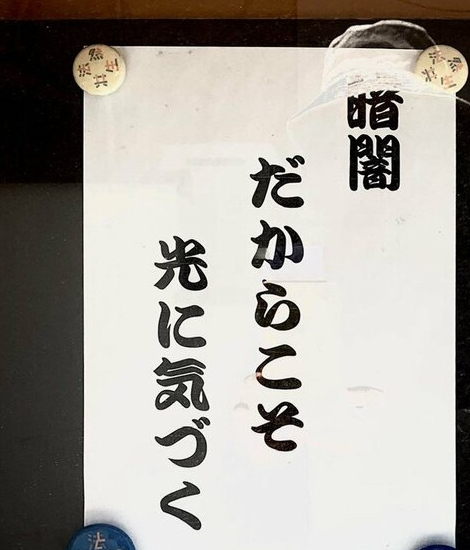 暗闇
だからこそ
光に気づく
法